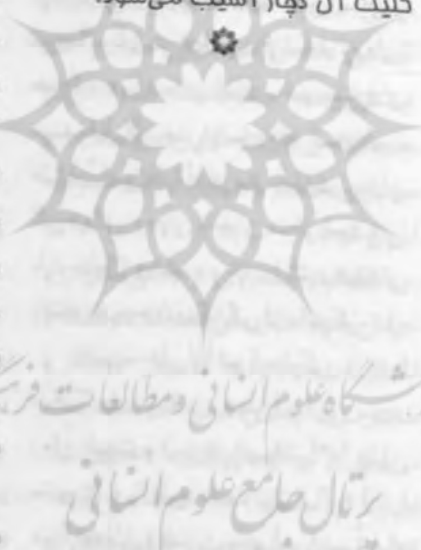 کلیت آن دچار آسیب می‌شود.
گاه علوم انسانی و مطالعات فرہنگ
پرتال جامع علوم انسانی